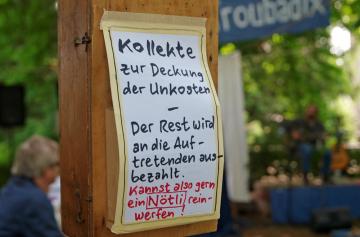 roubadix
Kollekte
zur Deckung
der Unkosten
–
Der Rest wird
an die Auf-
tretenden aus-
bezahlt.
Kannst also gern
ein Nötli rein-
werfen!